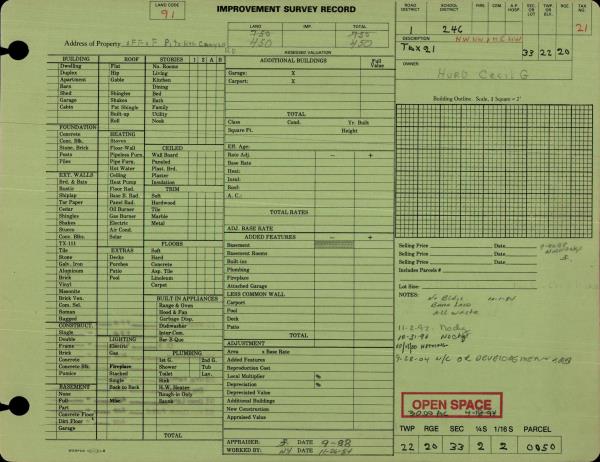 LAND CODE
91
IMPROVEMENT SURVEY RECORD
LAND IMP. TOTAL
750 750
450 450
ASSESSED VALUATION
Address of Property
ROAD DISTRICT SCHOOL DISTRICT FIRE COM. A.P. HOSP. SEC. OR LOT TWP. OR BLK. RGE TAX NO.
246 21
DESCRIPTION
Tax 21 33 22 20
OWNER
HURD Cecil G
BUILDING ROOF STORIES 1 2 A B
Dwelling Flat No. Rooms
Duplex Hip Living
Apartment Gable Kitchen
Barn Dining
Shed Shingles Bed
Garage Shakes Bath
Cabin Pat Shingle Family
Built-up Utility
Roll Nook
FOUNDATION
Concrete HEATING
Conc. Blk. Stoves CEILED
Stone, Brick Floor-Wall Wall Board
Posts Pipeless Furn. Paneled
Piles Pipe Furn. Plast. Brd.
Hot Water Ceiling
EXT. WALLS Ceiling Plaster
Brd. & Bats Heat Pump Insulation
Rustic Floor Rad. TRIM
Shiplap Base B. Rad. Soft
Tar Paper Panel Rad. Hardwood
Cedar Oil Burner Tile
Shingles Gas Burner Marble
Shakes Electric Metal
Stucco Air Cond.
Conc. Blks. Solar
TX-111 FLOORS
Tile EXTRAS Soft
Stone Decks Hard
Galv. Iron Porches Concrete
Aluminum Patio Asp. Tile
Brick Pool Linoleum
Vinyl Carpet
Masonite
Brick Ven. BUILT-IN APPLIANCES
Com. Sel. Range & Oven
Roman Hood & Fan
Rugged Garbage Disp.
CONSTRUCT. Dishwasher
Single Inter-Com.
Double LIGHTING Bar-B-Que
Frame Electric
Brick Gas PLUMBING
Concrete 1st G. 2nd G.
Concrete Blk. Fireplace Shower Tub
Pumice Stacked Toilet Lav.
Single Sink
BASEMENT Back to Back H.W. Heater
None Rough-in Only
Full Misc. Basmt.
Part
Concrete Floor
Dirt Floor
Garage TOTAL
ADDITIONAL BUILDINGS Full Value
Garage: X
Carport: X
TOTAL
Class Cond. Yr. Built
Square Ft. Height
Eff. Age:
Rate Adj. – +
Base Rate
Heat:
Insul:
Bsmt:
A. C.:
TOTAL RATES
ADJ. BASE RATE
ADDED FEATURES – +
Basement
Basement Rooms
Built-ins
Plumbing
Fireplace
Attached Garage
LESS COMMON WALL
Carport
Pool
Deck
Patio
TOTAL
ADJUSTMENT
Area x Base Rate
Added Features
Reproduction Cost
Local Multiplier %
Depreciation %
Depreciated Value
Additional Buildings
New Construction
Appraised Value
APPRAISER: DATE 9-88
WORKED BY: NY DATE 11-26-84
Building Outline Scale, 1 Square = 2'
Selling Price Date
Selling Price Date
Selling Price Date
Includes Parcels #
Lot Size:
NOTES:
No Bldgs
Bare Land
All Waste
11-2-92
10-31-96
9-28-04 N/C OR DEVELOPEMENT
OPEN SPACE
30.00 AC
TWP RGE SEC ¼S 1/16S PARCEL
22 20 33 2 2 0050